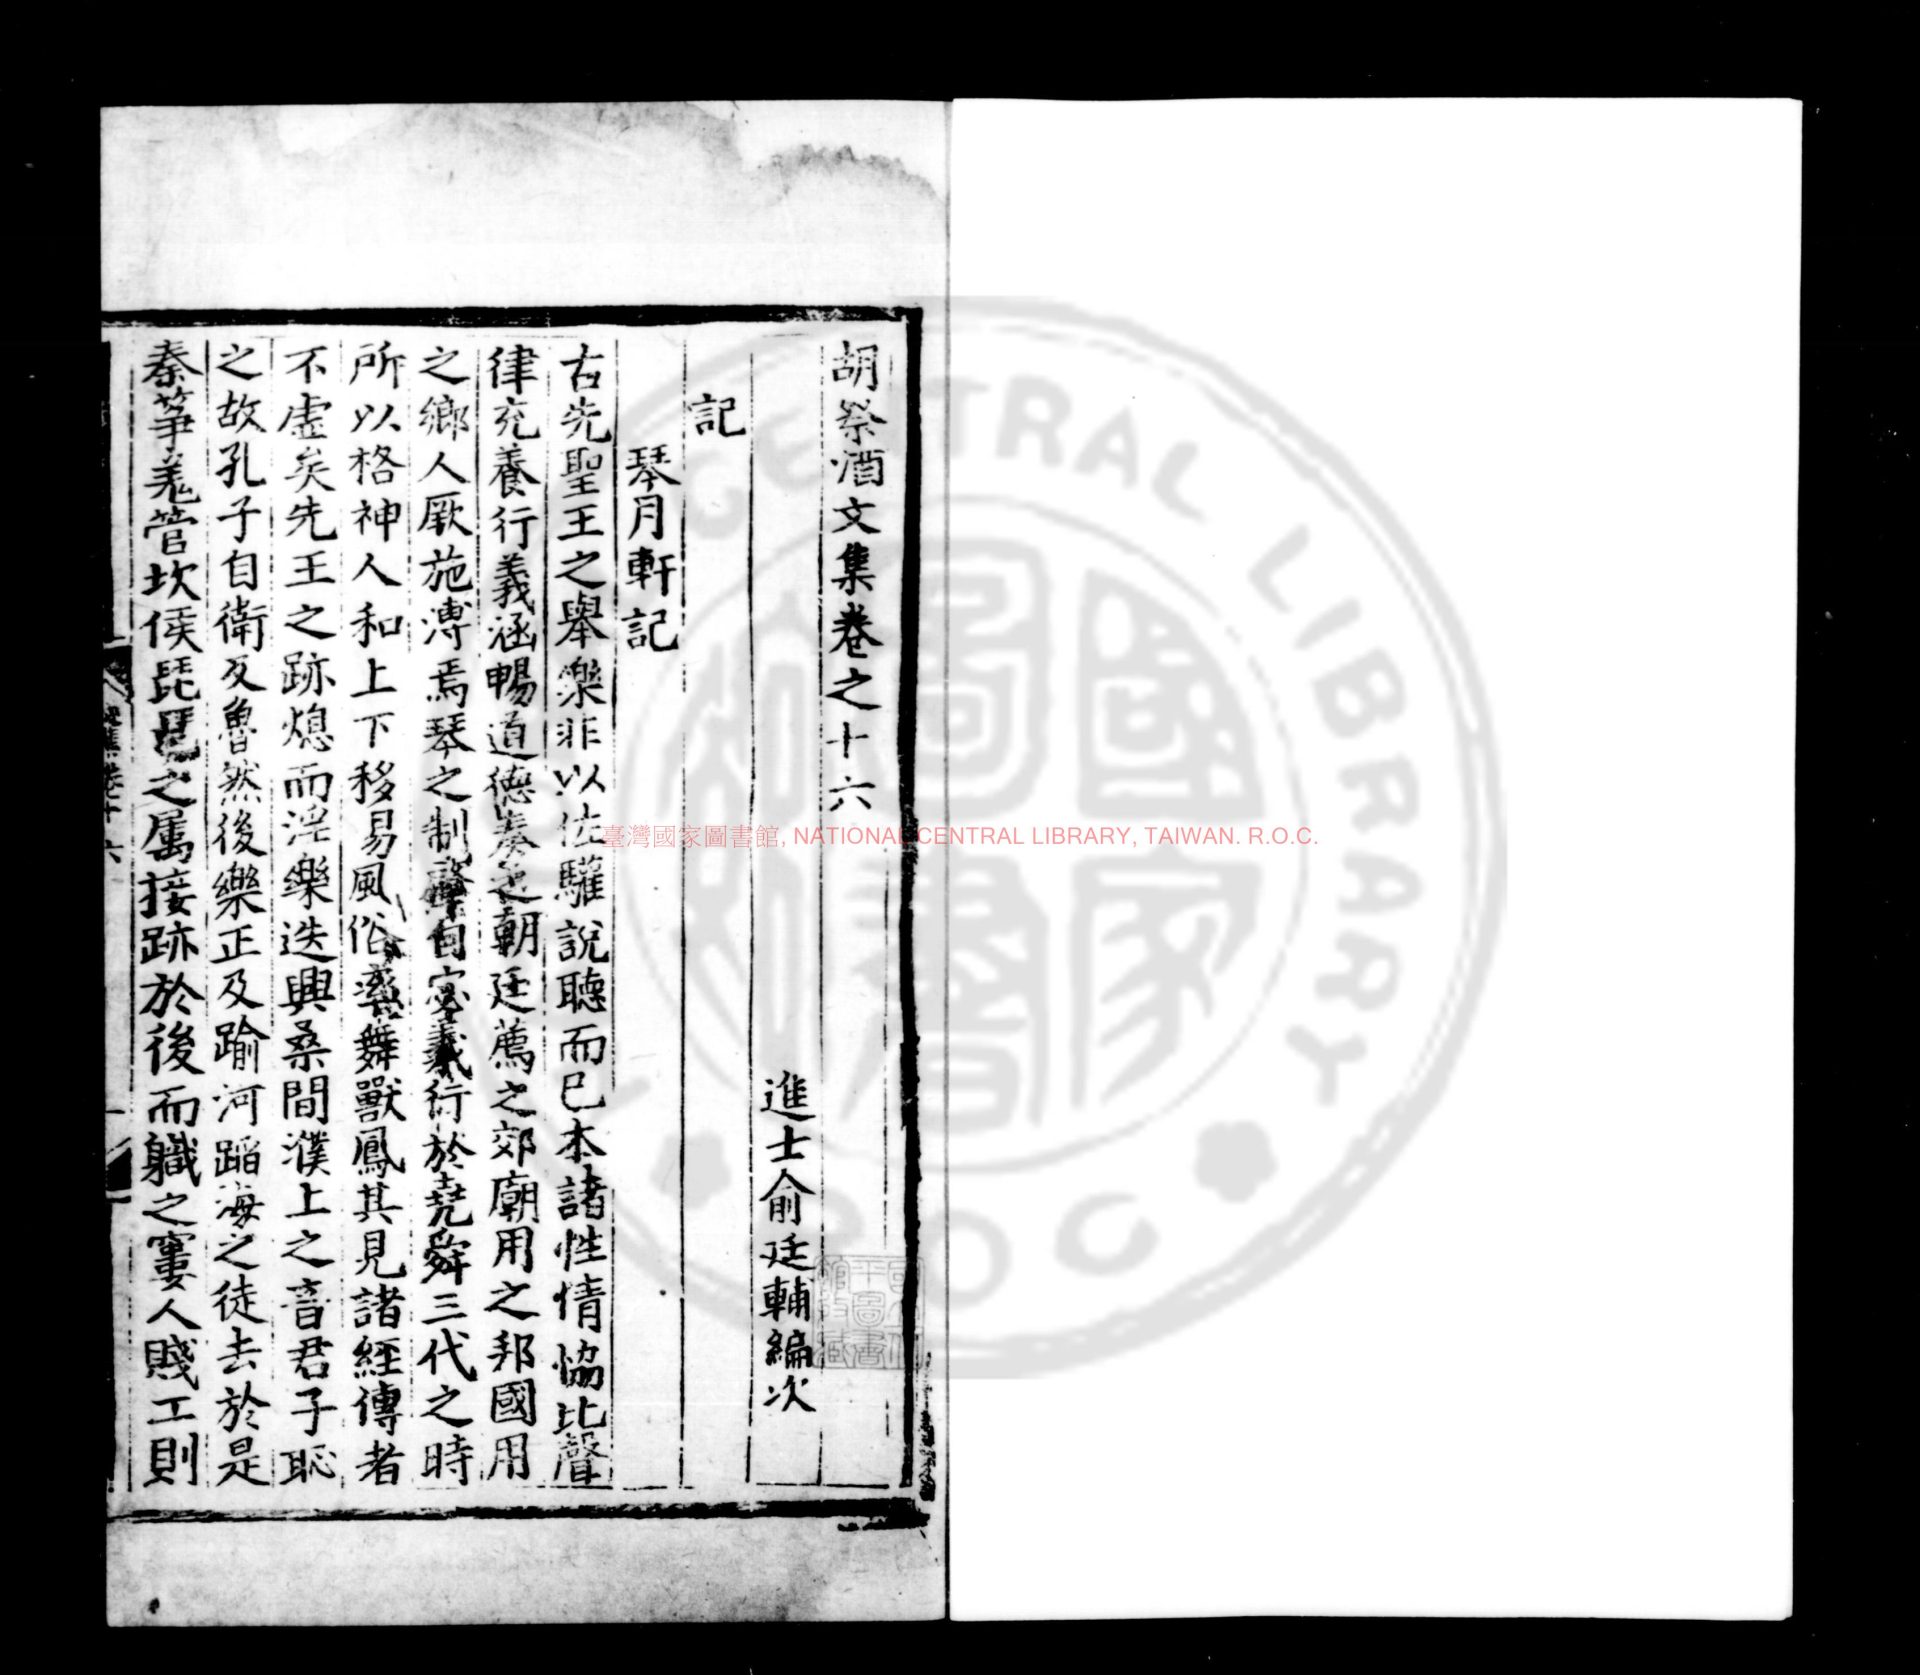 胡祭酒文集卷之十六
進士俞廷輔編次
記
琴月軒記
古先聖王之舉樂非以佐驩說聽而已本諸性情恊比聲
律充養行義涵暢道德奏之朝廷薦之郊廟用之邦國用
之鄉人厥施溥焉琴之制
自宓羲行於堯舜三代之時
所以格神人和上下移易風俗
舞獸鳳其見諸經傳者
不虛矣先王之跡熄而淫樂迭興桑間濮上之音君子恥
之故孔子自衛反魯然後樂正及踰河蹈海之徒去於是
秦箏羌管坎侯琵琶之屬接跡於後而軄之窶人賤工則
臺灣國家圖書館, NATIONAL CENTRAL LIBRARY, TAIWAN. R.O.C.
CENTRAL LIBRARY
ROC
國家圖書館